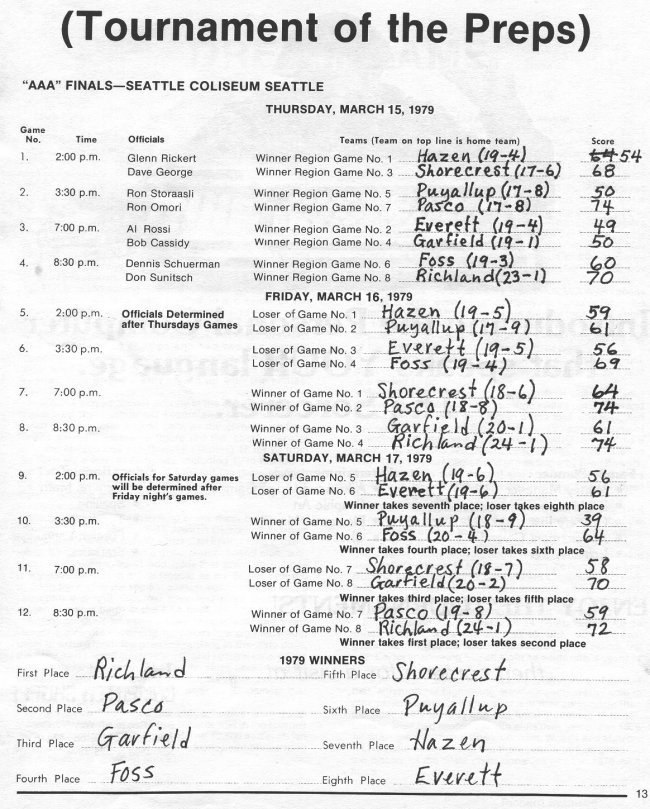 (Tournament of the Preps)
"AAA" FINALS—SEATTLE COLISEUM SEATTLE
THURSDAY, MARCH 15, 1979
Game No. Time Officials Teams (Team on top line is home team) Score
1. 2:00 p.m. Glenn Rickert Winner Region Game No. 1 Hazen (19-4) 64 54
Dave George Winner Region Game No. 3 Shorecrest (17-6) 68
2. 3:30 p.m. Ron Storaasli Winner Region Game No. 5 Puyallup (17-8) 50
Ron Omori Winner Region Game No. 7 Pasco (17-8) 74
3. 7:00 p.m. Al Rossi Winner Region Game No. 2 Everett (19-4) 49
Bob Cassidy Winner Region Game No. 4 Garfield (19-1) 50
4. 8:30 p.m. Dennis Schuerman Winner Region Game No. 6 Foss (19-3) 60
Don Sunitsch Winner Region Game No. 8 Richland (23-1) 70
FRIDAY, MARCH 16, 1979
5. 2:00 p.m. Officials Determined Loser of Game No. 1 Hazen (19-5) 59
after Thursdays Games Loser of Game No. 2 Puyallup (17-9) 61
6. 3:30 p.m. Loser of Game No. 3 Everett (19-5) 56
Loser of Game No. 4 Foss (19-4) 69
7. 7:00 p.m. Winner of Game No. 1 Shorecrest (18-6) 64
Winner of Game No. 2 Pasco (18-8) 74
8. 8:30 p.m. Winner of Game No. 3 Garfield (20-1) 61
Winner of Game No. 4 Richland (24-1) 74
SATURDAY, MARCH 17, 1979
9. 2:00 p.m. Officials for Saturday games Loser of Game No. 5 Hazen (19-6) 56
will be determined after Loser of Game No. 6 Everett (19-6) 61
Friday night's games. Winner takes seventh place; loser takes eighth place
10. 3:30 p.m. Winner of Game No. 5 Puyallup (18-9) 39
Winner of Game No. 6 Foss (20-4) 64
Winner takes fourth place; loser takes sixth place
11. 7:00 p.m. Loser of Game No. 7 Shorecrest (18-7) 58
Loser of Game No. 8 Garfield (20-2) 70
Winner takes third place; loser takes fifth place
12. 8:30 p.m. Winner of Game No. 7 Pasco (19-8) 59
Winner of Game No. 8 Richland (24-1) 72
Winner takes first place; loser takes second place
1979 WINNERS
First Place Richland Fifth Place Shorecrest
Second Place Pasco Sixth Place Puyallup
Third Place Garfield Seventh Place Hazen
Fourth Place Foss Eighth Place Everett
13